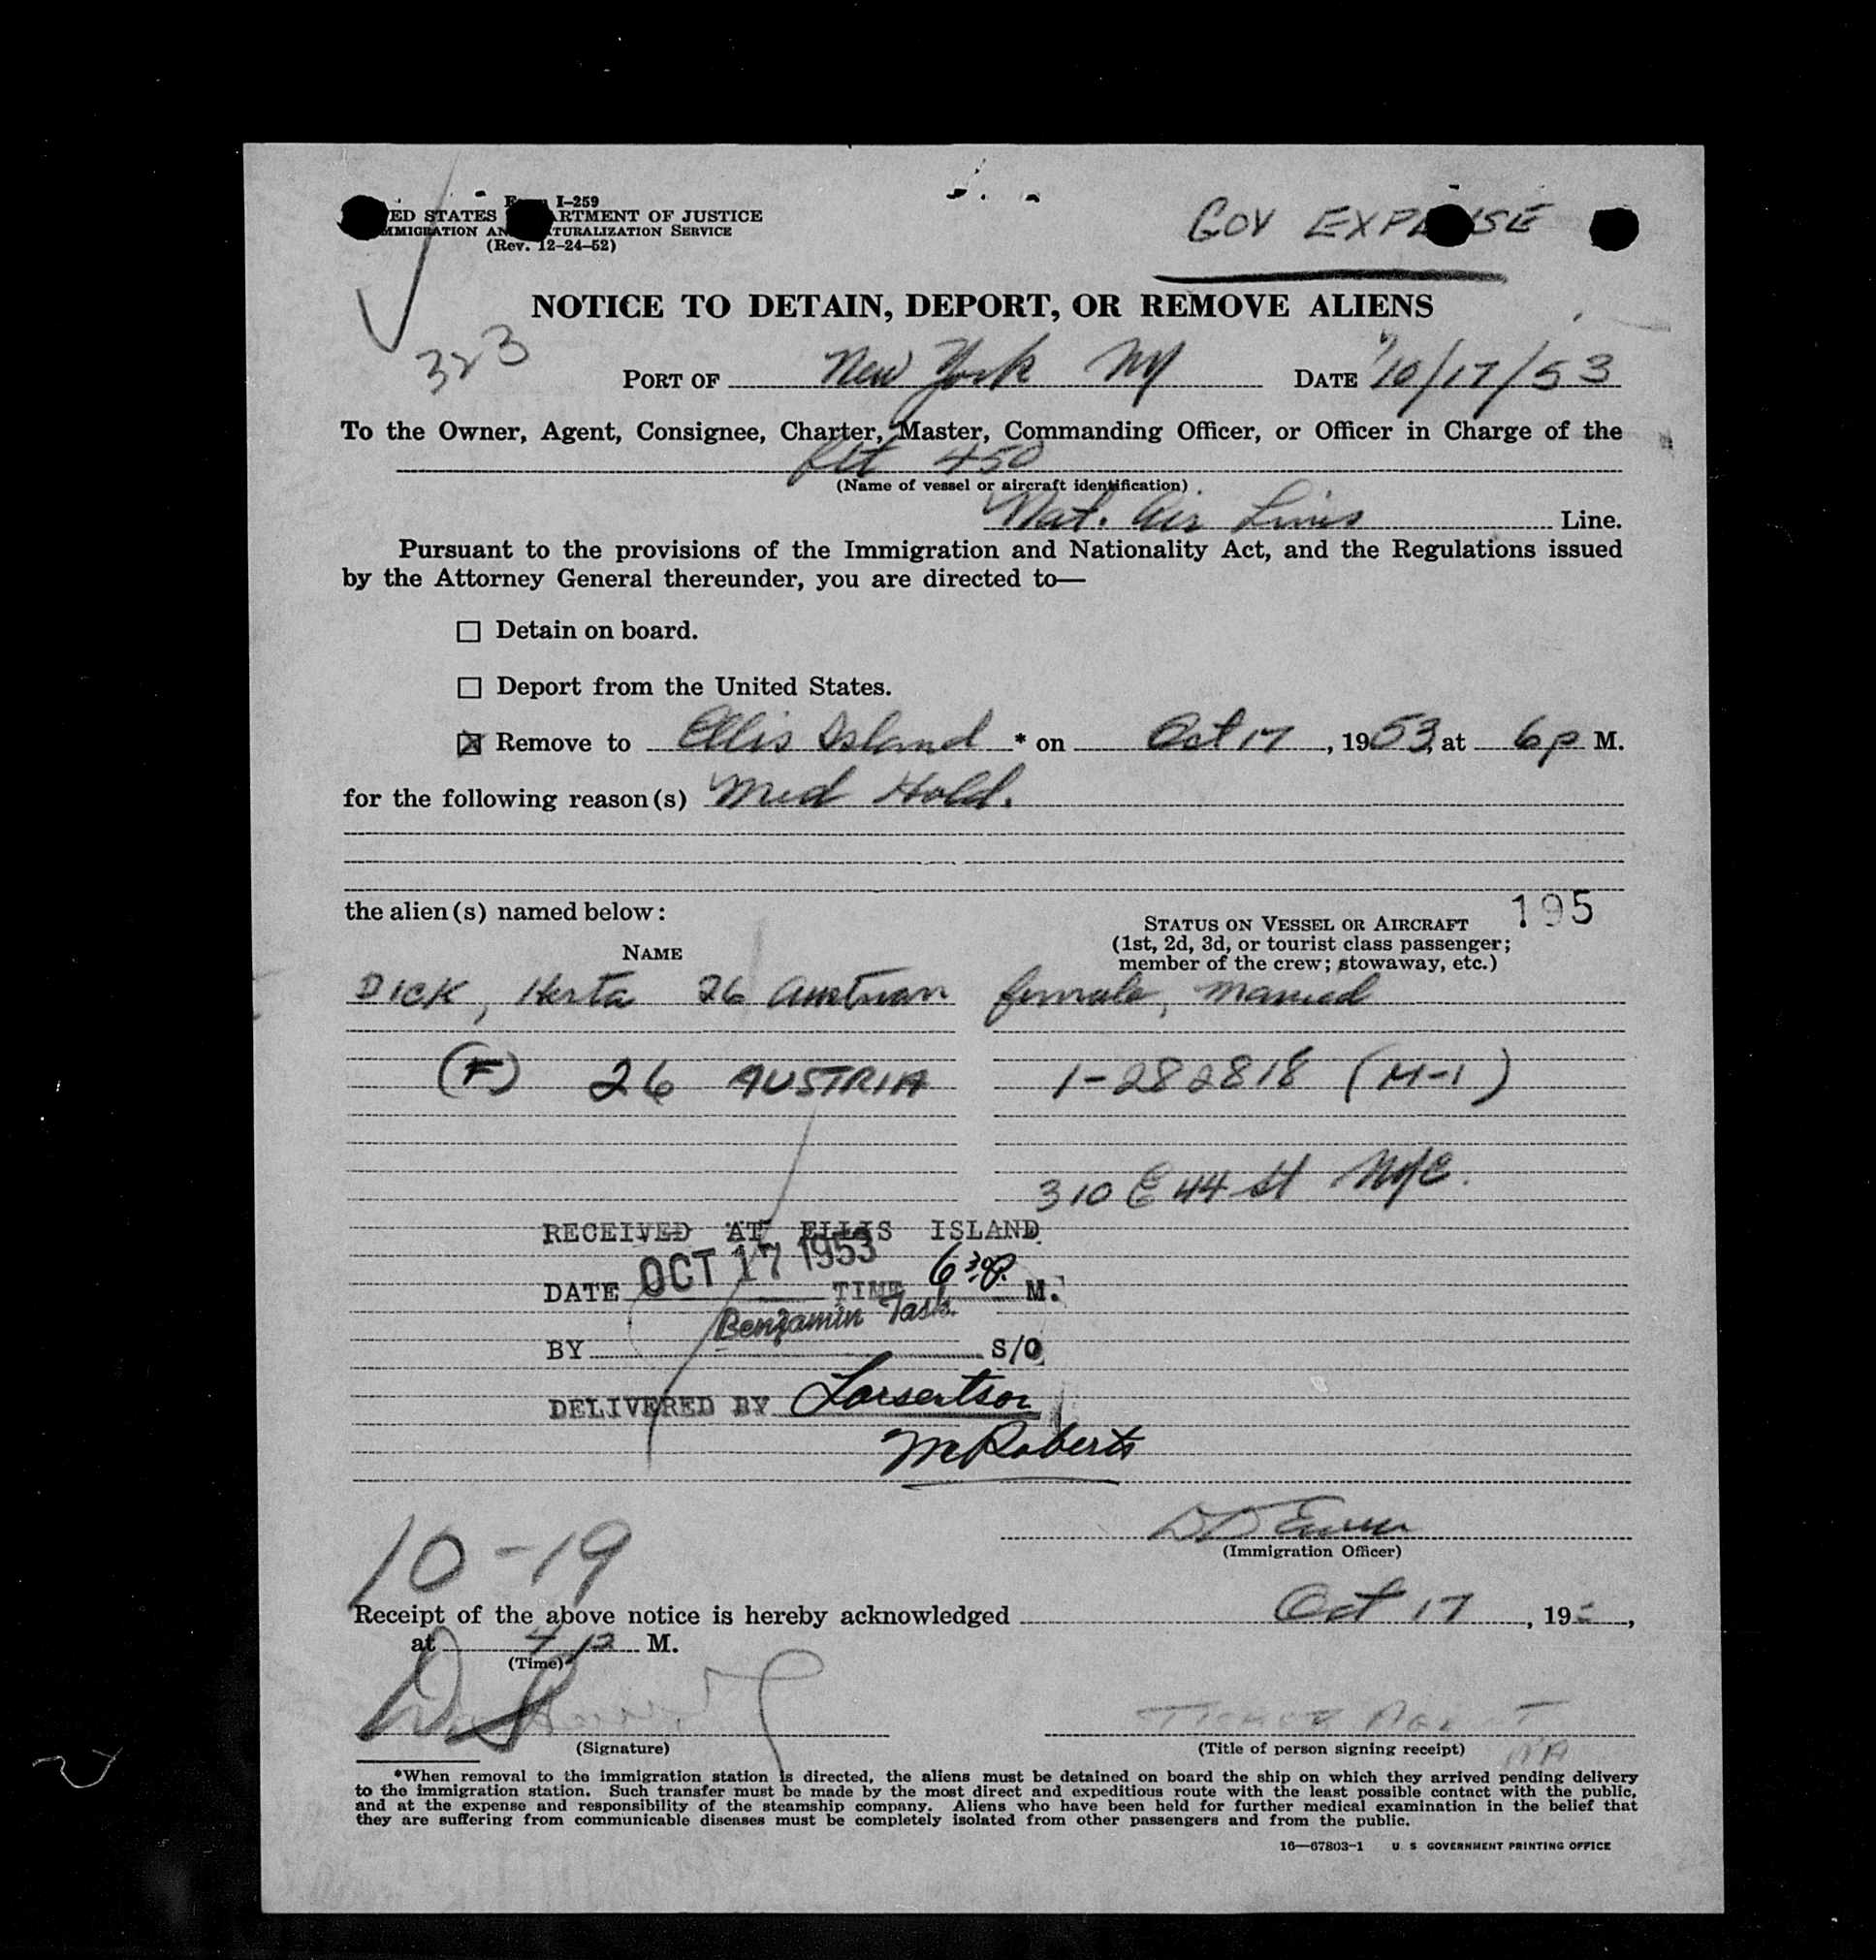 I-259
ED STATES ARTMENT OF JUSTICE
MMIGRATION AN TURALIZATION SERVICE
(Rev. 12-24-52)
GOV EXPENSE
NOTICE TO DETAIN, DEPORT, OR REMOVE ALIENS
323
PORT OF New York NY DATE 10/17/53
To the Owner, Agent, Consignee, Charter, Master, Commanding Officer, or Officer in Charge of the
flt 450
(Name of vessel or aircraft identification)
Nat. Air Lines Line.
Pursuant to the provisions of the Immigration and Nationality Act, and the Regulations issued
by the Attorney General thereunder, you are directed to—
☐ Detain on board.
☐ Deport from the United States.
☒ Remove to Ellis Island * on Oct 17, 1953, at 6 p M.
for the following reason(s) Med Hold.
195
the alien(s) named below:
STATUS ON VESSEL OR AIRCRAFT
(1st, 2d, 3d, or tourist class passenger;
member of the crew; stowaway, etc.)
NAME
DICK, Herta 26 Austrian female, married
(F) 26 AUSTRIA 1-282818 (M-1)
310 E 44 St NYC.
RECEIVED AT ELLIS ISLAND
DATE OCT 17 1953 TIME 6 30 P. M.
BY Benjamin Task S/O
DELIVERED BY
McRoberts
(Immigration Officer)
10-19
Receipt of the above notice is hereby acknowledged Oct 17, 195,
at 4 p M.
(Time)
(Signature)
(Title of person signing receipt)
*When removal to the immigration station is directed, the aliens must be detained on board the ship on which they arrived pending delivery
to the immigration station. Such transfer must be made by the most direct and expeditious route with the least possible contact with the public,
and at the expense and responsibility of the steamship company. Aliens who have been held for further medical examination in the belief that
they are suffering from communicable diseases must be completely isolated from other passengers and from the public.
16—67803-1 U. S. GOVERNMENT PRINTING OFFICE